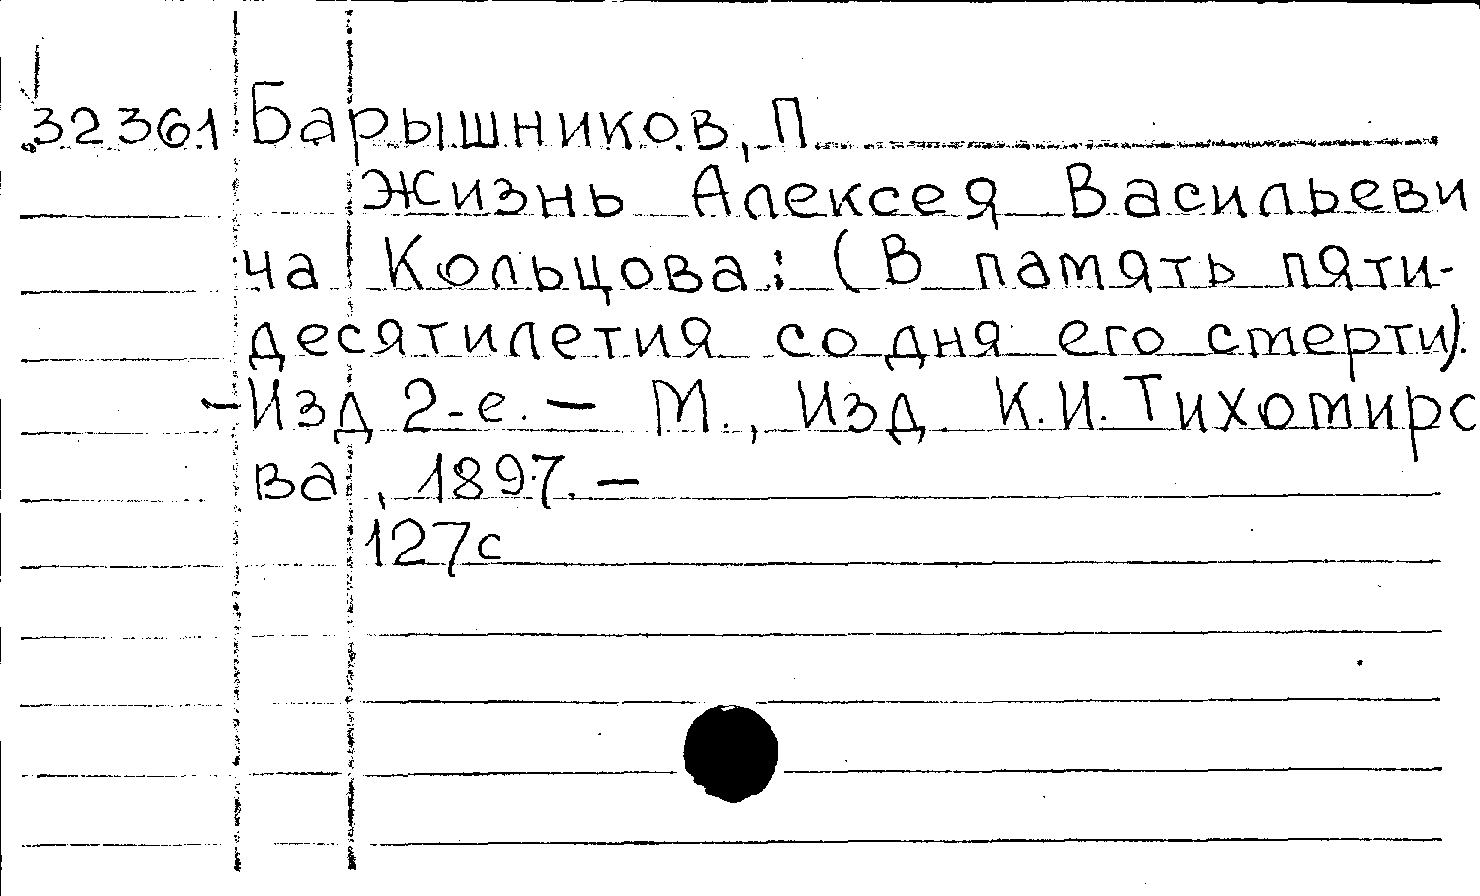 32361 Барышников, П
Жизнь Алексея Васильеви
ча Кольцова: (В память пяти-
десятилетия со дня его смерти).
-Изд 2-е. - М., Изд. К.И. Тихомиро
ва, 1897. -
127с